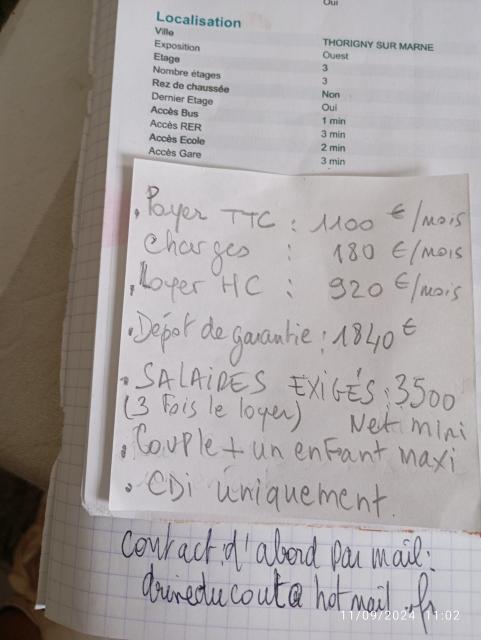 Oui
Localisation
Ville THORIGNY SUR MARNE
Exposition Ouest
Etage 3
Nombre étages 3
Rez de chaussée Non
Dernier Etage Oui
Accès Bus 1 min
Accès RER 3 min
Accès Ecole 2 min
Accès Gare 3 min
• Loyer TTC : 1100 €/mois
Charges : 180 €/mois
• Loyer HC : 920 €/mois
• Dépôt de garantie : 1840 €
• SALAIRES EXIGÉS : 3500
(3 Fois le loyer) Net mini
• Couple + un enfant maxi
• CDi uniquement.
contact d'abord par mail :
@ hotmail.fr
11/09/2024 11:02